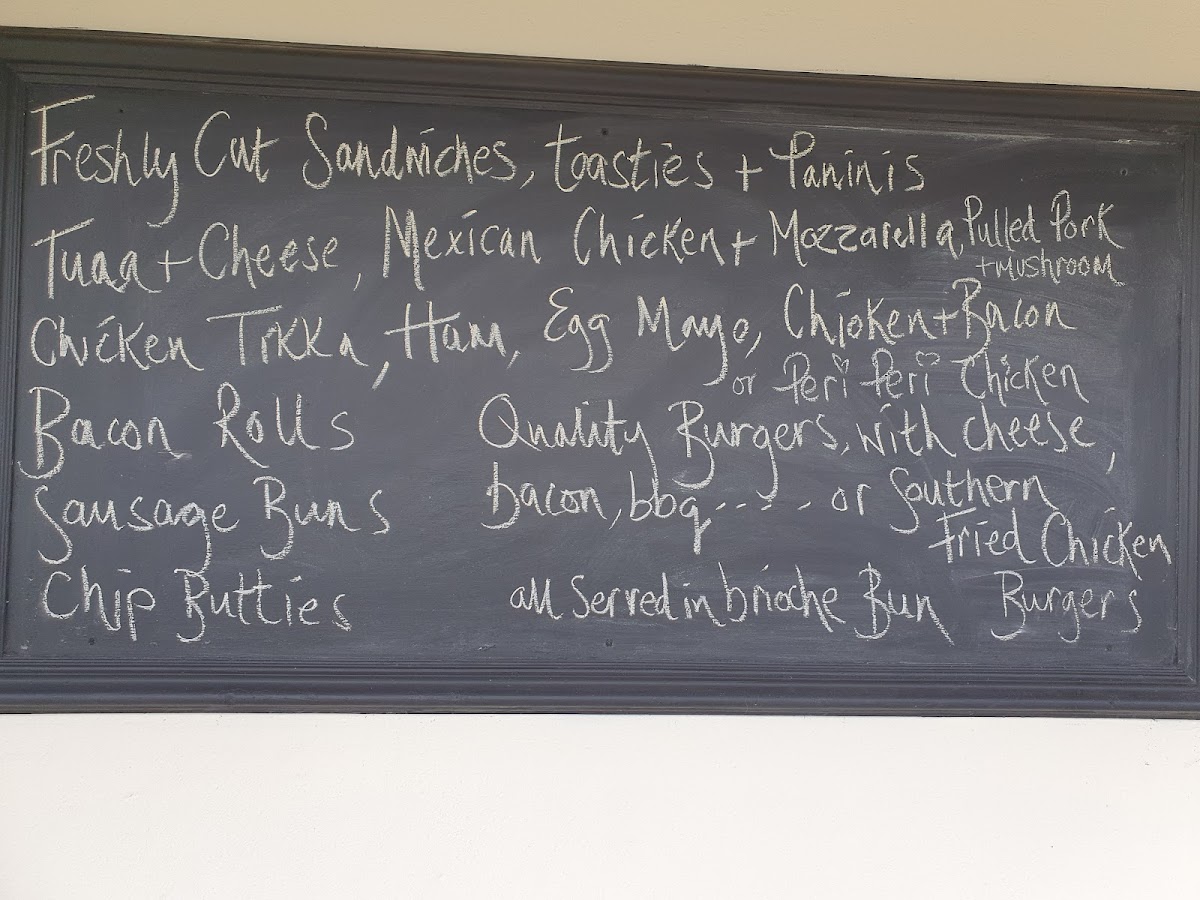 Freshly Cut Sandwiches, toasties + Paninis
Tuna + Cheese, Mexican Chicken + Mozzarella Pulled Pork
+ Mushroom
Chicken Tikka, Ham, Egg Mayo, Chicken + Bacon
or Peri Peri Chicken
Bacon Rolls
Quality Burgers, with cheese,
Sausage Buns
bacon, bbq..... or Southern
Fried Chicken
Chip Butties
all Served in brioche Bun Burgers